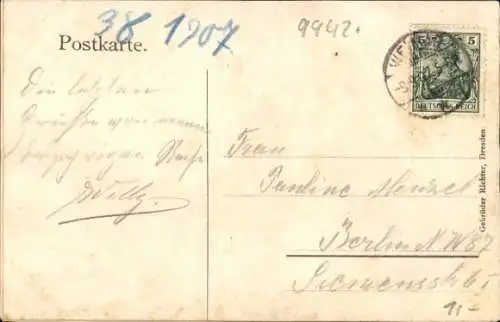 38 1907
9942.
Postkarte.
5 5
DEUTSCHES REICH
Die letzten
Grüße von meiner
Reise
Willy.
Frau
Pauline Menzel
Berlin N.W 87
Siemensstr 6
11-
Gebrüder Richter, Dresden